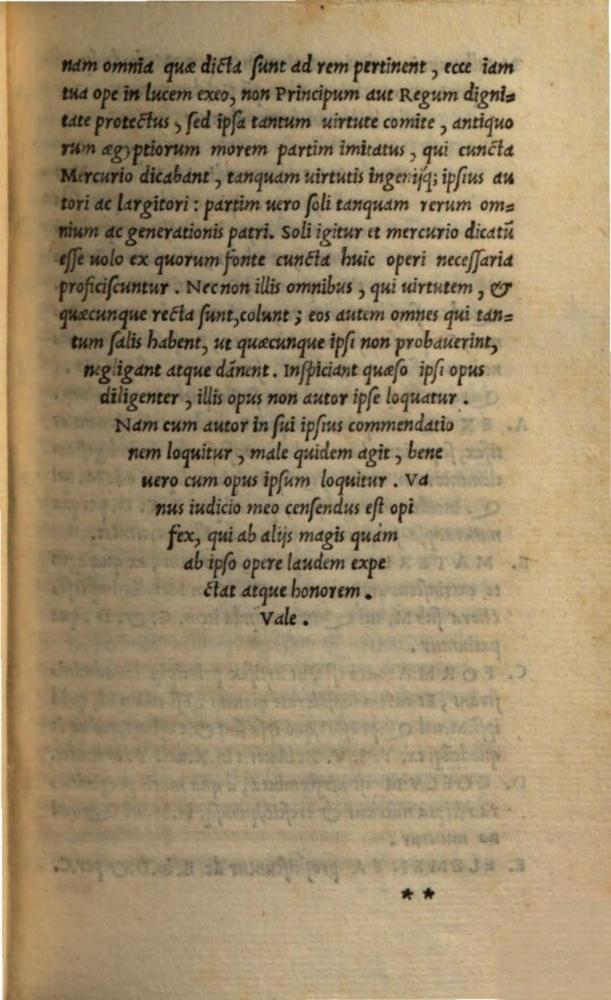 nam omnia quæ dicta sunt ad rem pertinent, ecce iam
tua ope in lucem exeo, non Principum aut Regum digni=
tate protectus, sed ipsa tantum uirtute comite, antiquo
rum ægyptiorum morem partim imitatus, qui cuncta
Mercurio dicabant, tanquam uirtutis ingenijq; ipsius au
tori ac largitori: partim uero soli tanquam rerum om=
nium ac generationis patri. Soli igitur et mercurio dicatū
esse uolo ex quorum fonte cuncta huic operi necessaria
proficiscuntur. Nec non illis omnibus, qui uirtutem, &
quæcunque recta sunt, colunt; eos autem omnes qui tan=
tum salis habent, ut quæcunque ipsi non probauerint,
negligant atque dānent. Inspiciant quæso ipsi opus
diligenter, illis opus non autor ipse loquatur.
Nam cum autor in sui ipsius commendatio
nem loquitur, male quidem agit, bene
uero cum opus ipsum loquitur. Va
nus iudicio meo censendus est opi
fex, qui ab alijs magis quàm
ab ipso opere laudem expe
ctat atque honorem.
Vale.
* *